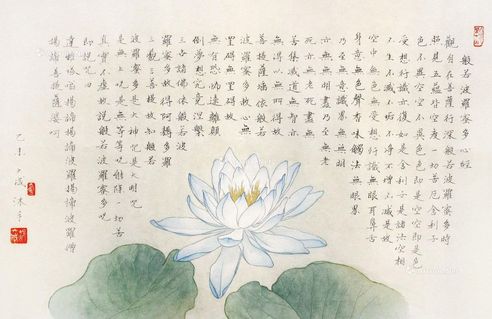 般若波羅蜜多心經
觀自在菩薩行深般若波羅蜜多時
照見五蘊皆空度一切苦厄舍利子
色不異空空不異色色即是空空即是色
受想行識亦復如是舍利子是諸法空相
不生不滅不垢不淨不增不減是故
空中無色無受想行識無眼耳鼻舌
身意無色聲香味觸法無眼界
乃至無意識界無無明
亦無無明盡乃至無老
死亦無老死盡無
苦集滅道無智亦
無得以無所得故
菩提薩埵依般若
波羅蜜多故心無
罣礙無罣礙故
無有恐怖遠離顛
倒夢想究竟涅槃
三世諸佛依般若
波羅蜜多故得阿耨多羅
三藐三菩提故知般若
波羅蜜多是大神咒是大明咒
是無上咒是無等等咒能除一切苦
真實不虛故說般若波羅蜜多咒
即說咒曰
揭諦揭諦波羅揭諦波羅僧
揭諦菩提薩婆訶
乙未 沐手